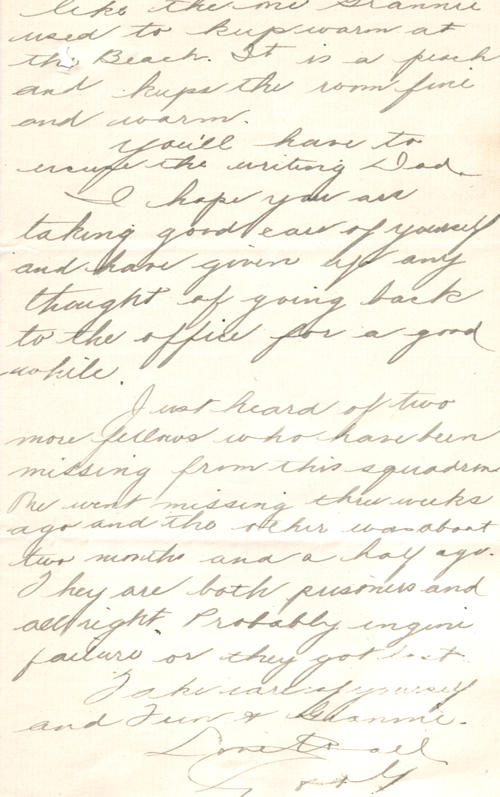 like the one Grannie
used to keep warm at
the Beach. It is a peach
and keeps the room fine
and warm.
You'll have to
excuse the writing Dad.
I hope you are
taking good care of yourself
and have given up any
thought of going back
to the office for a good
while.
Just heard of two
more fellows who have been
missing from this squadron
One went missing three weeks
ago and the other was about
two months and a half ago.
They are both prisoners and
all right. Probably engine
failure or they got lost.
Take care of yourself
and Fun & Grannie.
Love to all